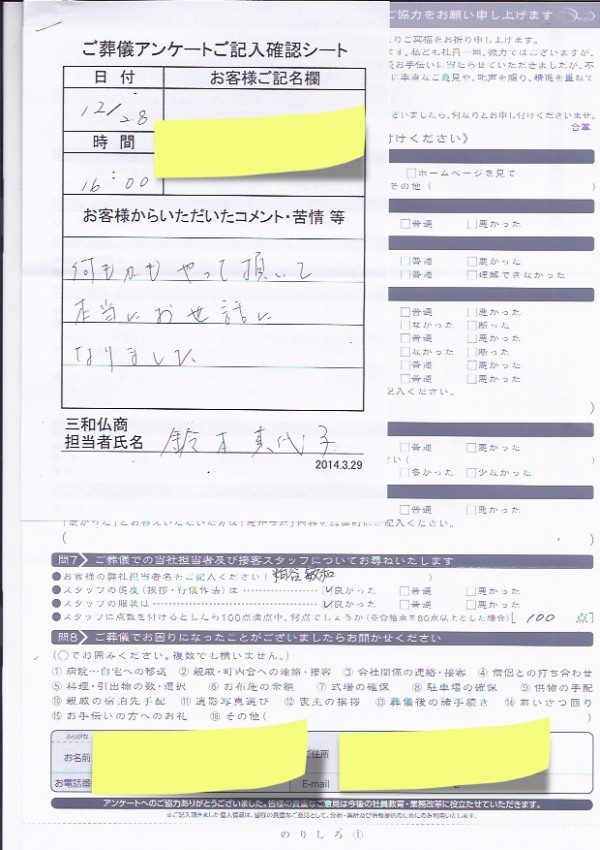 ご協力をお願い申し上げます
ご葬儀アンケートご記入確認シート
日付
お客様ご記名欄
12/28
時間
16:00
お客様からいただいたコメント・苦情 等
何もかもやって頂いて
本当にお世話に
なりました
三和仏商
担当者氏名 鈴木恵代子
2014.3.29
りご冥福をお祈り申し上げます。
合掌
付けください》
□ホームページを見て
その他(
□普通 □悪かった
□普通 □悪かった
□普通 □理解できなかった
□普通 □悪かった
□なかった □断った
□普通 □悪かった
□なかった □断った
□普通 □悪かった
□普通 □悪かった
記入ください。
)
□普通 □悪かった
さい(
□多かった □少なかった
□普通 □悪かった
( )
問7 ご葬儀での当社担当者及び接客スタッフについてお尋ねいたします
●お客様の弊社担当者名をご記入ください( 粕谷敏和 )
●スタッフの態度(挨拶・行儀作法)は □良かった □普通 □悪かった
●スタッフの服装は □良かった □普通 □悪かった
●スタッフに点数を付けるとしたら100点満点中、何点でしょうか(※合格点を80点以上とした場合)[ 100 点]
問8 ご葬儀でお困りになったことがございましたらお聞かせください
(○でお囲みください。複数でも構いません。)
①病院…自宅への移送 ②親戚・町内会への連絡・接客 ③会社関係の連絡・接客 ④僧侶との打ち合わせ
⑤料理・引出物の数・選択 ⑥お布施の金額 ⑦式場の確保 ⑧駐車場の確保 ⑨供物の手配
⑩親戚の宿泊先手配 ⑪遺影写真選び ⑫喪主の挨拶 ⑬葬儀後の諸手続き ⑭あいさつ回り
⑮お手伝いの方へのお礼 ⑯その他( )
ふりがな
お名前
ご住所
お電話番
E-mail
アンケートへのご協力ありがとうございました。皆様の貴重なご意見は今後の社員教育・業務改革に役立たせていただきます。
※ご記入頂きました個人情報は、皆様の貴重なご意見として、分析・集計及び情報提供のためにのみ利用いたします。
のりしろ①